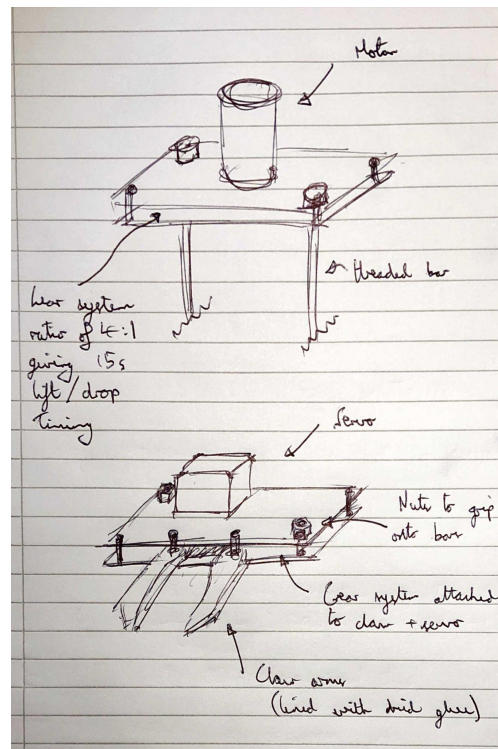 Motor
Threaded bar
Gear system
ratio of 4:1
giving 15s
lift/drop
timing
Servo
Nuts to grip
onto bar
Gear system attached
to claw + servo
Claw arms
(lined with dried glue)